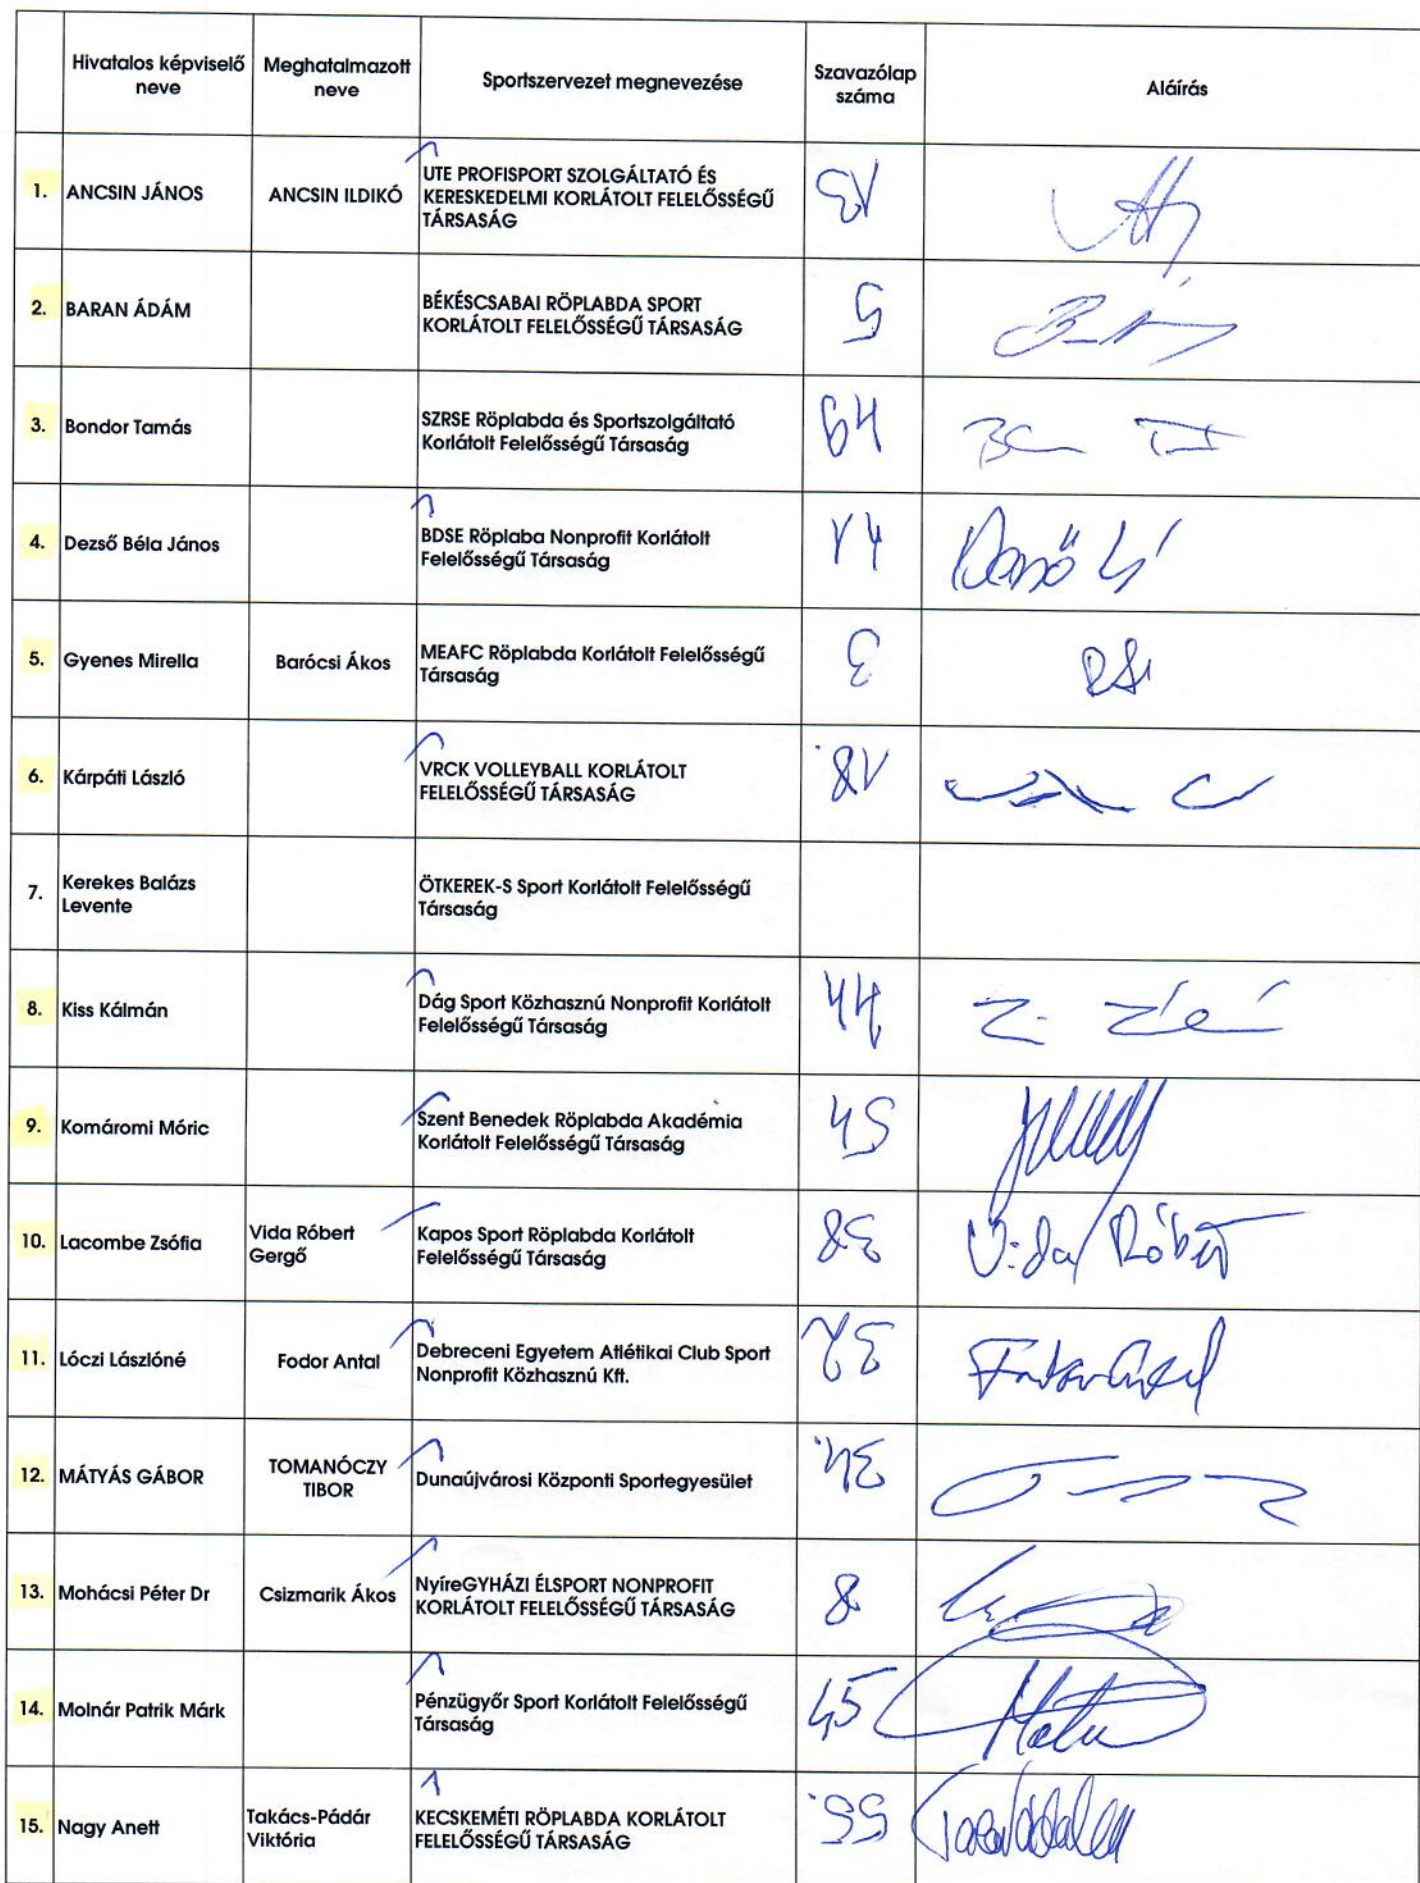 Hivatalos képviselő neve
Meghatalmazott neve
Sportszervezet megnevezése
Szavazólap száma
Aláírás
1. ANCSIN JÁNOS ANCSIN ILDIKÓ UTE PROFISPORT SZOLGÁLTATÓ ÉS
KERESKEDELMI KORLÁTOLT FELELŐSSÉGŰ
TÁRSASÁG
13
2. BARAN ÁDÁM BÉKÉSCSABAI RÖPLABDA SPORT
KORLÁTOLT FELELŐSSÉGŰ TÁRSASÁG
5
3. Bondor Tamás SZRSE Röplabda és Sportszolgáltató
Korlátolt Felelősségű Társaság
4. Dezső Béla János BDSE Röplaba Nonprofit Korlátolt
Felelősségű Társaság
5. Gyenes Mirella Barócsi Ákos MEAFC Röplabda Korlátolt Felelősségű
Társaság
3
6. Kárpáti László VRCK VOLLEYBALL KORLÁTOLT
FELELŐSSÉGŰ TÁRSASÁG
18
7. Kerekes Balázs
Levente
ÖTKEREK-S Sport Korlátolt Felelősségű
Társaság
8. Kiss Kálmán Dág Sport Közhasznú Nonprofit Korlátolt
Felelősségű Társaság
44
9. Komáromi Móric Szent Benedek Röplabda Akadémia
Korlátolt Felelősségű Társaság
10. Lacombe Zsófia Vida Róbert
Gergő
Kapos Sport Röplabda Korlátolt
Felelősségű Társaság
38 Vida Róbert
11. Lóczi Lászlóné Fodor Antal Debreceni Egyetem Atlétikai Club Sport
Nonprofit Közhasznú Kft.
32 Fodor Antal
12. MÁTYÁS GÁBOR TOMANÓCZY
TIBOR
Dunaújvárosi Központi Sportegyesület
34
13. Mohácsi Péter Dr Csizmarik Ákos NyíreGYHÁZI ÉLSPORT NONPROFIT
KORLÁTOLT FELELŐSSÉGŰ TÁRSASÁG
8
14. Molnár Patrik Márk Pénzügyőr Sport Korlátolt Felelősségű
Társaság
45
15. Nagy Anett Takács-Pádár
Viktória
KECSKEMÉTI RÖPLABDA KORLÁTOLT
FELELŐSSÉGŰ TÁRSASÁG
55